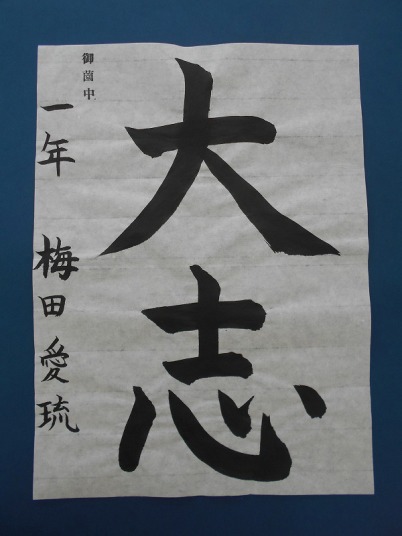 大志
御薗中
一年 梅田愛琉